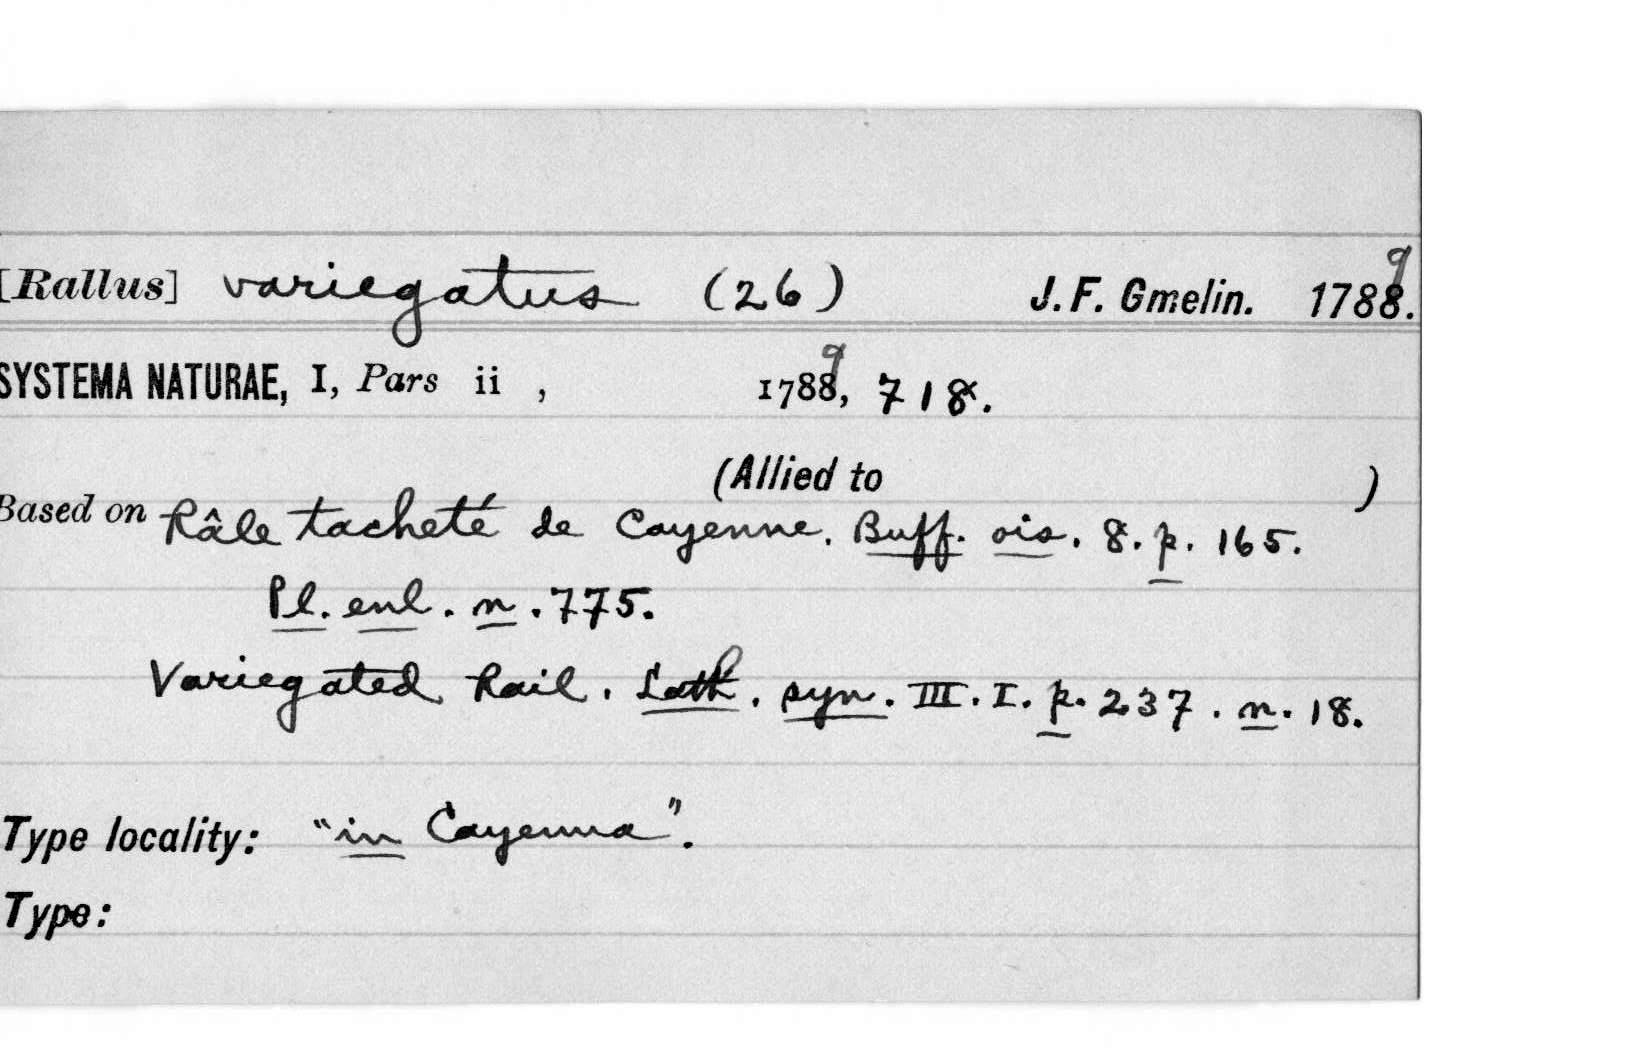 [Rallus] variegatus (26) J. F. Gmelin. 1789.
SYSTEMA NATURAE, I, Pars ii , 1789, 718.
(Allied to )
Based on Râle tacheté de Cayenne. Buff. ois. 8. p. 165.
Pl. enl. n. 775.
Variegated Rail. Lath. syn. III. I. p. 237. n. 18.
Type locality: "in Cayenna".
Type: